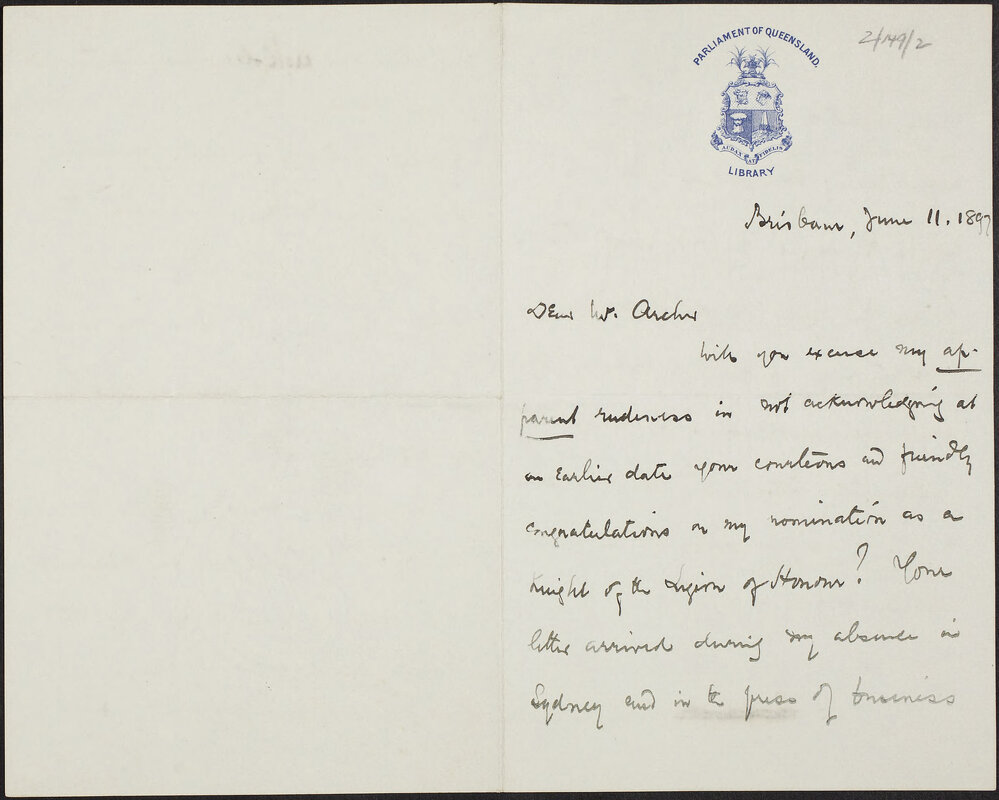 PARLIAMENT OF QUEENSLAND.
2/149/2
AUDAX AT FIDELIS
LIBRARY
Brisbane, June 11. 1897
Dear Mr. Archer
Will you excuse my ap-
parent rudeness in not acknowledging at
an earlier date your courteous and friendly
congratulations on my nomination as a
Knight of the Legion of Honour? Your
letter arrived during my absence in
Sydney and in the press of business